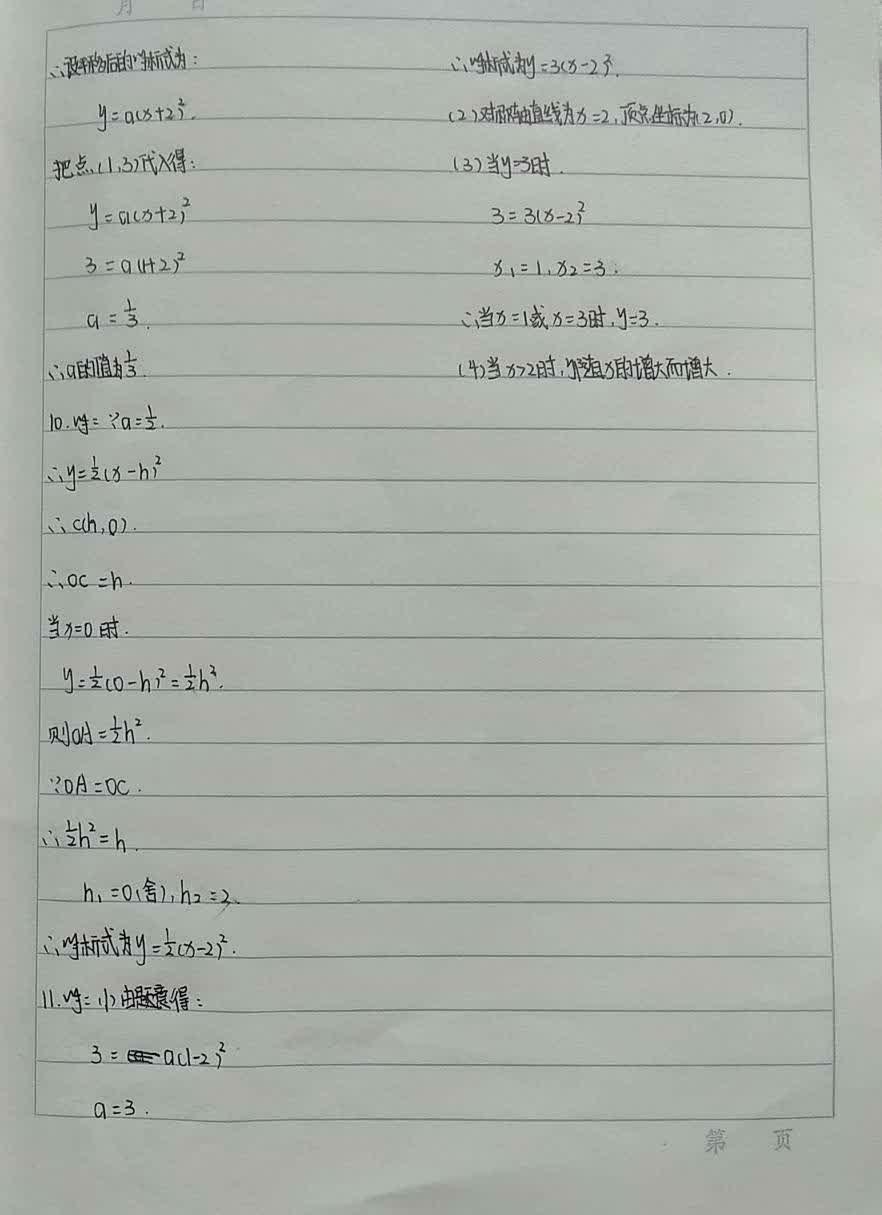 月 日
∴设平移后的解析式为:
y=a(x+2)².
把点(1,3)代入得:
y=a(x+2)²
3=a(1+2)²
a=1/3.
∴a的值为1/3.
10.解:∵a=1/2.
∴y=1/2(x-h)²
∴C(h,0).
∴OC=h.
当x=0时.
y=1/2(0-h)²=1/2h².
则OA=1/2h².
∵OA=OC.
∴1/2h²=h.
h₁=0(舍),h₂=2.
∴解析式为y=1/2(x-2)².
11.解:(1)由题意得:
3=a(1-2)²
a=3.
∴解析式为y=3(x-2)².
(2)对称轴直线为x=2,顶点坐标为(2,0).
(3)当y=3时.
3=3(x-2)²
x₁=1,x₂=3.
∴当x=1或x=3时,y=3.
(4)当x>2时,y随x的增大而增大.
第 页